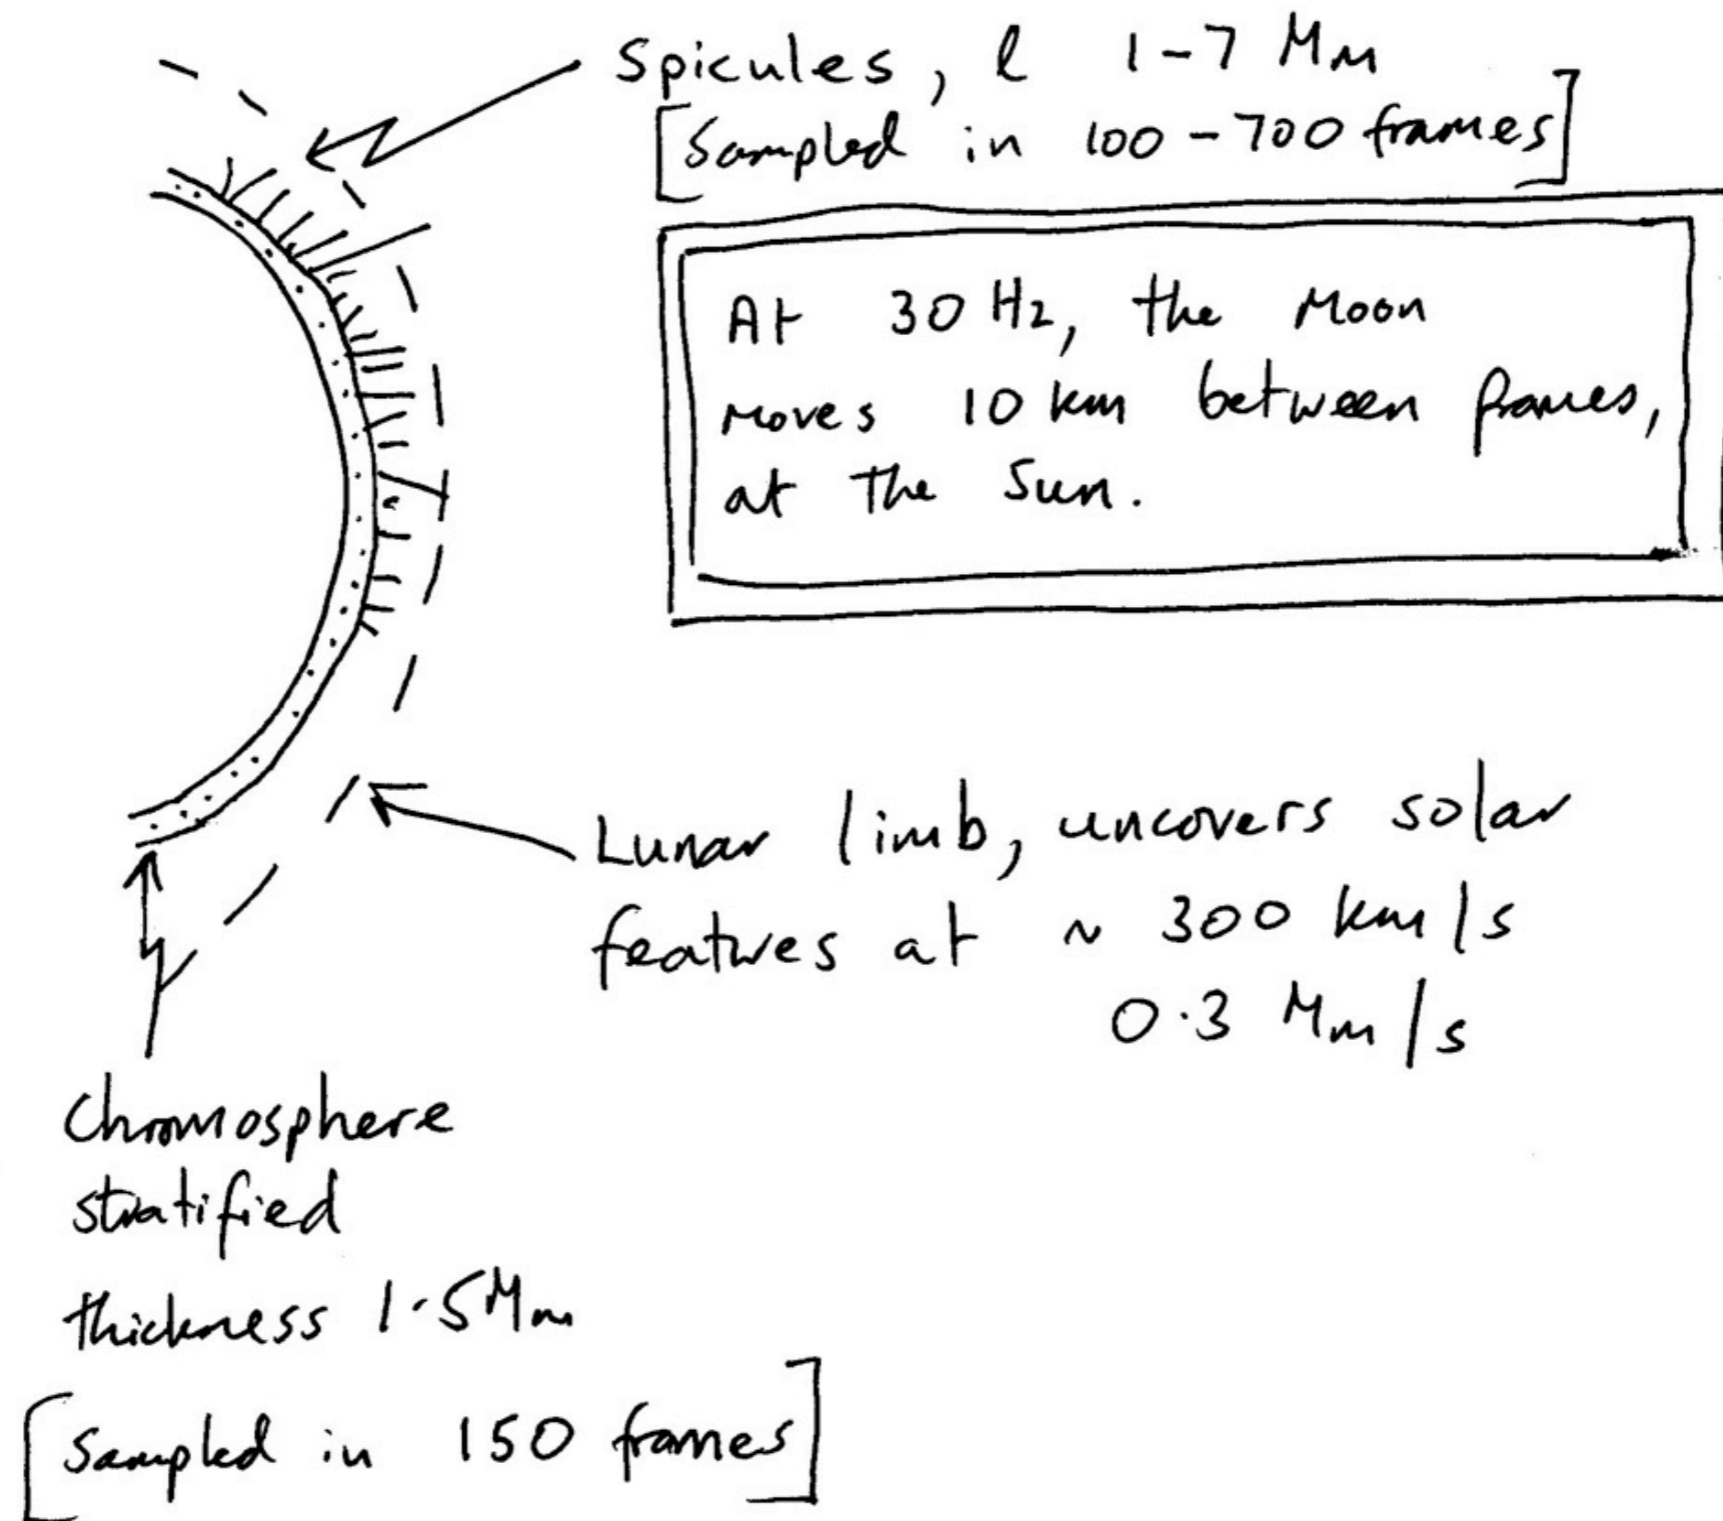 Spicules, l 1-7 Mm
[Sampled in 100-700 frames]
At 30 Hz, the Moon
moves 10 km between frames,
at the Sun.
Lunar limb, uncovers solar
features at ~ 300 km/s
0.3 Mm/s
Chromosphere
stratified
thickness 1.5Mm
[Sampled in 150 frames]